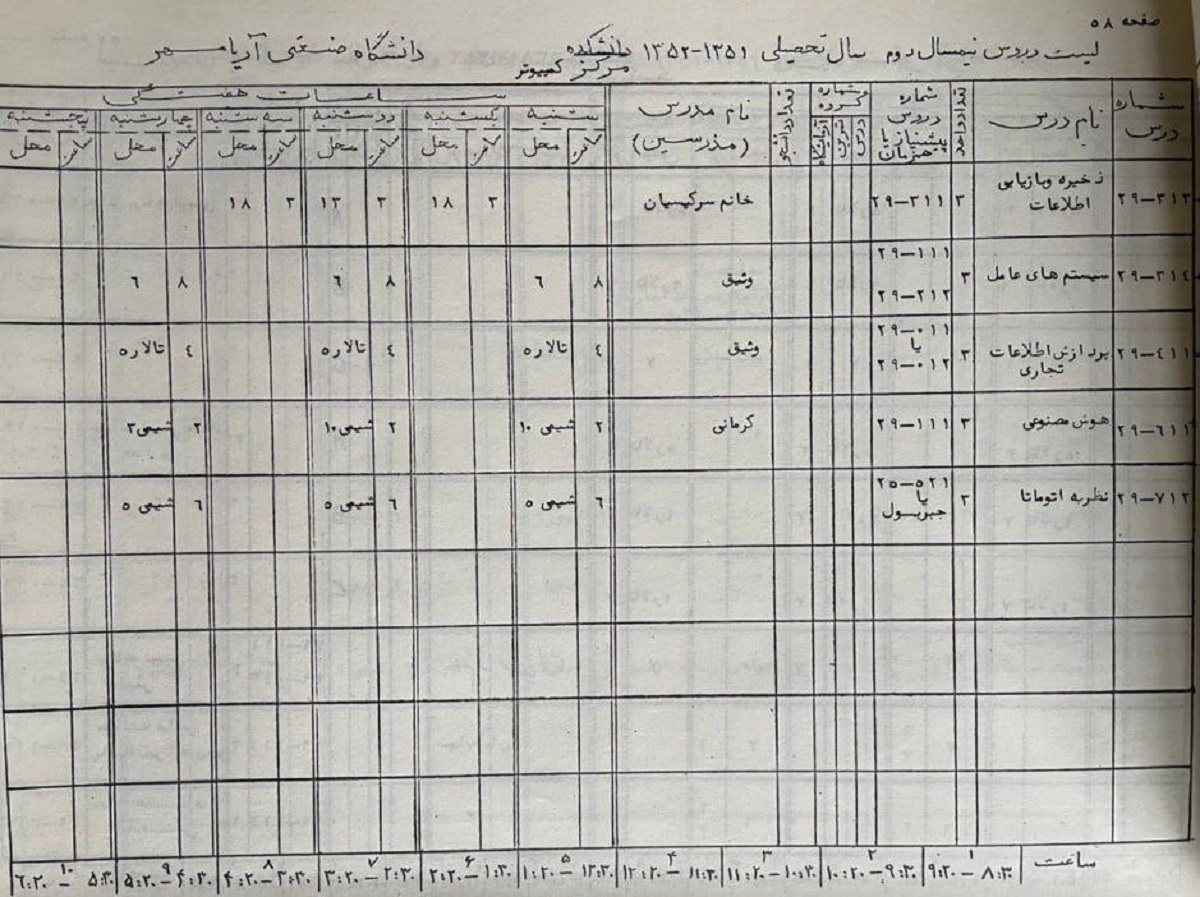 صفحه ۵۸
لیست دروس نیمسال دوم سال تحصیلی ۱۳۵۱-۱۳۵۲ دانشکده دانشگاه صنعتی آریامهر
مرکز کمپیوتر
شماره درس | نام درس | تعداد واحد | شماره دروس پیشنیاز یا همزمان | شماره گروه | درس | تمرین | آزمایشگاه | تعداد دانشجو | نام مدرس (مدرسین) | ساعات هفتگی
شنبه | یکشنبه | دوشنبه | سه شنبه | چهارشنبه | پنجشنبه
ساعت | محل | ساعت | محل | ساعت | محل | ساعت | محل | ساعت | محل | ساعت | محل
۲۹-۳۱۳ | ذخیره وبازیابی اطلاعات | ۳ | ۲۹-۳۱۱ | خانم سرکیسیان | ۳ | ۱۸ | ۳ | ۱۳ | ۳ | ۱۸
۲۹-۳۱۴ | سیستم های عامل | ۳ | ۲۹-۱۱۱ ۲۹-۲۱۲ | وثیق | ۸ | ۶ | ۸ | ۶ | ۸ | ۶
۲۹-۴۱۱ | پردازش اطلاعات تجاری | ۳ | ۲۹-۰۱۱ یا ۲۹-۰۱۲ | وثیق | ۴ | تالار۵ | ۴ | تالار۵ | ۴ | تالار۵
۲۹-۶۱۱ | هوش مصنوعی | ۳ | ۲۹-۱۱۱ | کرمانی | ۲ | شیمی ۱۰ | ۲ | شیمی۱۰ | ۲ | شیمی۳
۲۹-۷۱۲ | نظریه اتوماتا | ۳ | ۲۵-۵۲۱ یا جبربول | ۶ | شیمی ۵ | ۶ | شیمی ۵ | ۶ | شیمی ۵
ساعت | ۱ | ۲ | ۳ | ۴ | ۵ | ۶ | ۷ | ۸ | ۹ | ۱۰
۸:۳۰ - ۹:۲۰ | ۹:۳۰ - ۱۰:۲۰ | ۱۰:۳۰ - ۱۱:۲۰ | ۱۱:۳۰ - ۱۲:۲۰ | ۱۲:۳۰ - ۱:۲۰ | ۱:۳۰ - ۲:۲۰ | ۲:۳۰ - ۳:۲۰ | ۳:۳۰ - ۴:۲۰ | ۴:۳۰ - ۵:۲۰ | ۵:۳۰ - ۶:۲۰